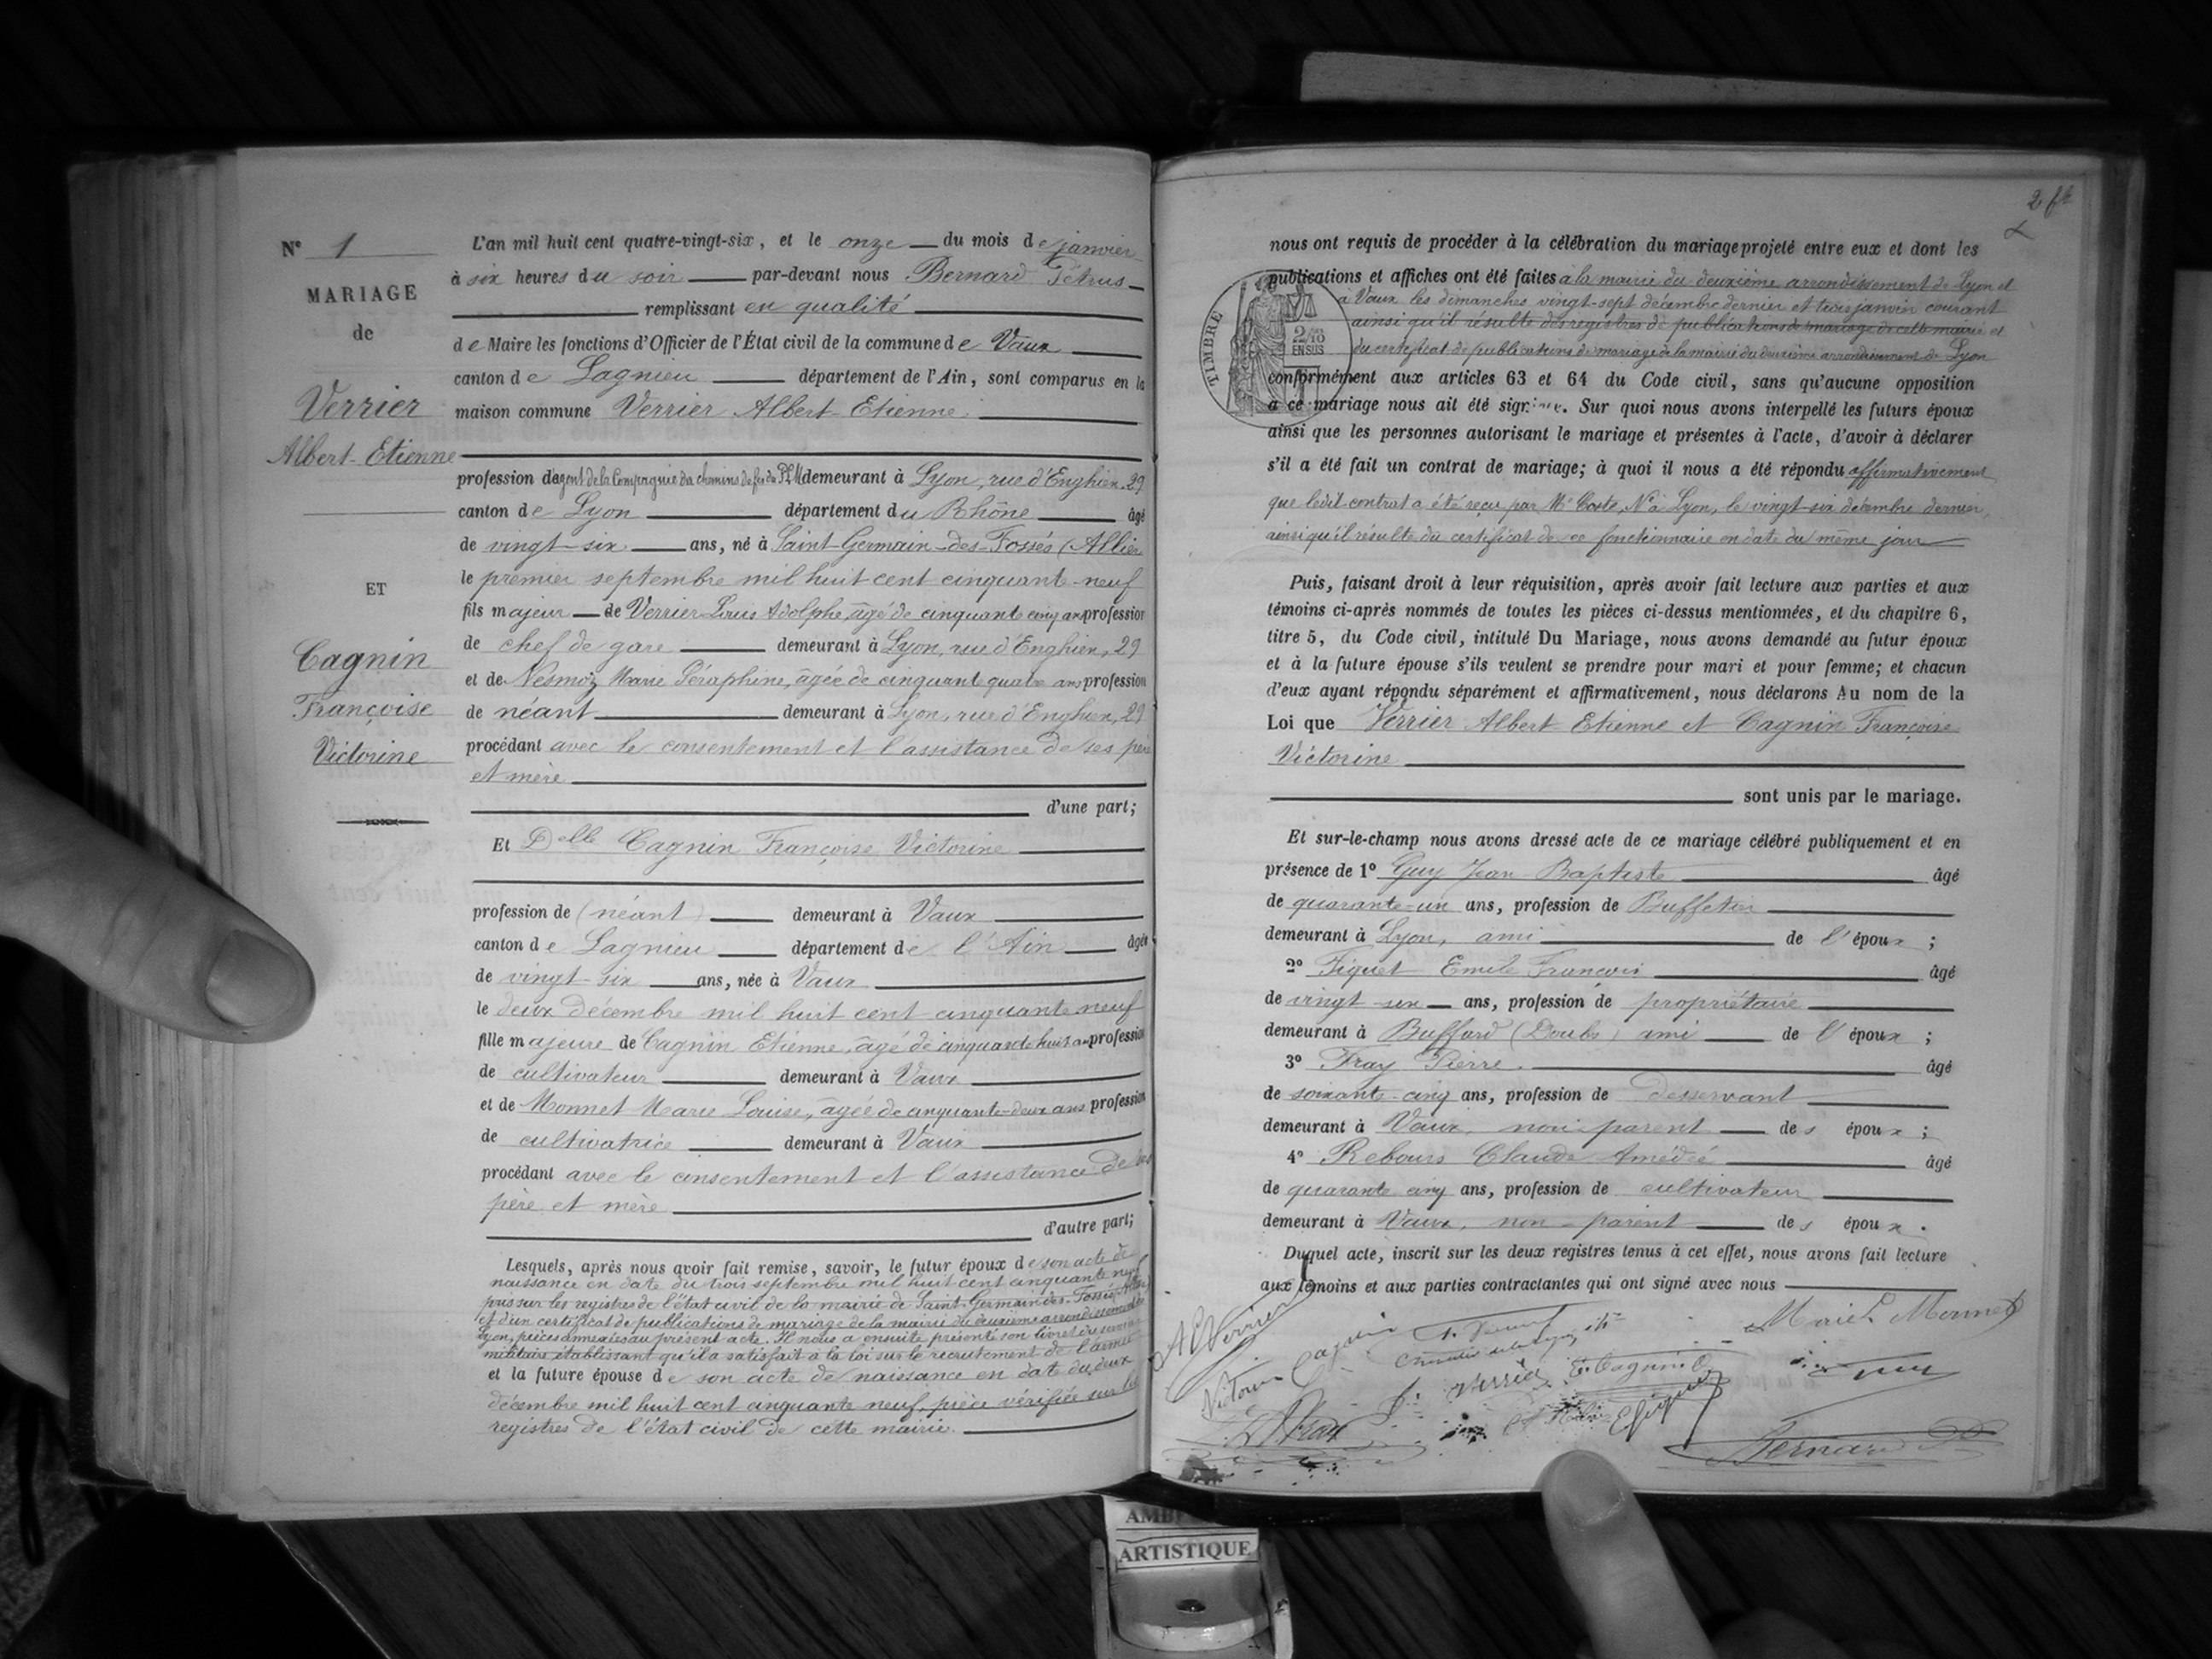 N° 1
MARIAGE
de
Verrier
Albert-Etienne
ET
Cagnin
Françoise
Victorine
L'an mil huit cent quatre-vingt-six, et le onze du mois de janvier
à six heures du soir par-devant nous Bernard Pétrus
remplissant en qualité
de Maire les fonctions d'Officier de l'État civil de la commune de Vaux
canton de Lagnieu département de l'Ain, sont comparus en la
maison commune Verrier Albert-Etienne
profession d'agent de la Compagnie des chemins de fer du PLM demeurant à Lyon, rue d'Enghien, 29
canton de Lyon département du Rhône âgé
de vingt-six ans, né à Saint-Germain-des-Fossés (Allier
le premier septembre mil huit cent cinquante-neuf
fils majeur de Verrier Louis Adolphe, âgé de cinquante cinq ans profession
de chef de gare demeurant à Lyon, rue d'Enghien, 29
et de Nesmoz Marie Séraphine, âgée de cinquante quatre ans profession
de néant demeurant à Lyon, rue d'Enghien, 29
procédant avec le consentement et l'assistance de ses père
et mère
d'une part;
Et Delle Cagnin Françoise Victorine
profession de (néant) demeurant à Vaux
canton de Lagnieu département de l'Ain âgée
de vingt-six ans, née à Vaux
le deux décembre mil huit cent cinquante neuf
fille majeure de Cagnin Etienne, âgé de cinquante huit ans profession
de cultivateur demeurant à Vaux
et de Monnet Marie Louise, âgée de cinquante-deux ans profession
de cultivatrice demeurant à Vaux
procédant avec le consentement et l'assistance de ses
père et mère
d'autre part;
Lesquels, après nous avoir fait remise, savoir, le futur époux de son acte de
naissance en date du trois septembre mil huit cent cinquante neuf
pris sur les registres de l'état civil de la mairie de Saint-Germain-des-Fossés (Allier)
et d'un certificat de publications de mariage de la mairie du deuxième arrondissement de
Lyon, pièces annexées au présent acte. Il nous a ensuite présenté son livret
militaire établissant qu'il a satisfait à la loi sur le recrutement de l'armée
et la future épouse de son acte de naissance en date du deux
décembre mil huit cent cinquante neuf, pièce vérifiée sur les
registres de l'état civil de cette mairie.
nous ont requis de procéder à la célébration du mariage projeté entre eux et dont les
publications et affiches ont été faites à la mairie du deuxième arrondissement de Lyon et
à Vaux les dimanches vingt-sept décembre dernier et trois janvier courant
ainsi qu'il résulte des registres de publications de mariage de cette mairie et
du certificat de publications de mariage de la mairie du deuxième arrondissement de Lyon
TIMBRE
2/10
EN SUS
conformément aux articles 63 et 64 du Code civil, sans qu'aucune opposition
à ce mariage nous ait été signifiée. Sur quoi nous avons interpellé les futurs époux
ainsi que les personnes autorisant le mariage et présentes à l'acte, d'avoir à déclarer
s'il a été fait un contrat de mariage; à quoi il nous a été répondu affirmativement
que ledit contrat a été reçu par Me Coste, Nre à Lyon, le vingt-six décembre dernier,
ainsi qu'il résulte du certificat de ce fonctionnaire en date du même jour
Puis, faisant droit à leur réquisition, après avoir fait lecture aux parties et aux
témoins ci-après nommés de toutes les pièces ci-dessus mentionnées, et du chapitre 6,
titre 5, du Code civil, intitulé Du Mariage, nous avons demandé au futur époux
et à la future épouse s'ils veulent se prendre pour mari et pour femme; et chacun
d'eux ayant répondu séparément et affirmativement, nous déclarons Au nom de la
Loi que Verrier Albert Etienne et Cagnin Françoise
Victorine
sont unis par le mariage.
Et sur-le-champ nous avons dressé acte de ce mariage célébré publiquement et en
présence de 1° Guy Jean-Baptiste âgé
de quarante-un ans, profession de Buffetier
demeurant à Lyon, ami de l'époux ;
2° Figuet Emile François âgé
de vingt six ans, profession de propriétaire
demeurant à Buffard (Doubs) ami de l'époux ;
3° Fray Pierre âgé
de soixante-cinq ans, profession de desservant
demeurant à Vaux, non-parent des époux ;
4° Rebours Claude Amédée âgé
de quarante cinq ans, profession de cultivateur
demeurant à Vaux, non-parent des époux.
Duquel acte, inscrit sur les deux registres tenus à cet effet, nous avons fait lecture
aux témoins et aux parties contractantes qui ont signé avec nous
A Verrier
Marie L. Monnet
Victorine Cagnin
Verrier
E. Cagnin
Fray
E Figuet
Bernard
ARTISTIQUE